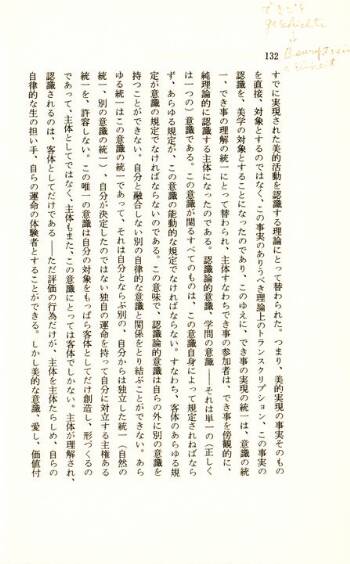 132
すでに実現された美的活動を認識する理論にとって替わられた。つまり、美的実現の事実そのもの
を直接、対象とするのではなく、この事実のありうべき理論上のトランスクリプション、この事実の
認識を、美学の対象とすることになったのであり、このゆえに、でき事の実現の統一は、意識の統
一、でき事の理解の統一にとって替わられ、主体すなわちでき事の参加者は、でき事を傍観的に、
純理論的に認識する主体になったのである。認識論的意識、学問の意識——それは単一の（正しく
は一つの）意識である。この意識が関るすべてのものは、この意識自身によって規定されねばなら
ず、あらゆる規定が、この意識の能動的な規定でなければならない。すなわち、客体のあらゆる規
定が意識の規定でなければならないのである。この意味で、認識論的意識は自らの外に別の意識を
持つことができない、自分と融合しない別の自律的な意識と関係をとり結ぶことができない。あら
ゆる統一はこの意識の統一であって、それは自分とならぶ別の、自分からは独立した統一（自然の
統一、別の意識の統一）、自分が決定したのではない独自の運命を持って自分に対立する主権ある
統一を、許容しない。この唯一の意識は自分の対象をもっぱら客体としてだけ創造し、形づくるの
であって、主体としてではなく、主体もまた、この意識にとっては客体でしかない。主体が理解され、
認識されるのは、客体としてだけである——ただ評価の行為だけが、主体を主体たらしめ、自らの
自律的な生の担い手、自らの運命の体験者とすることができる。しかし美的な意識、愛し、価値付